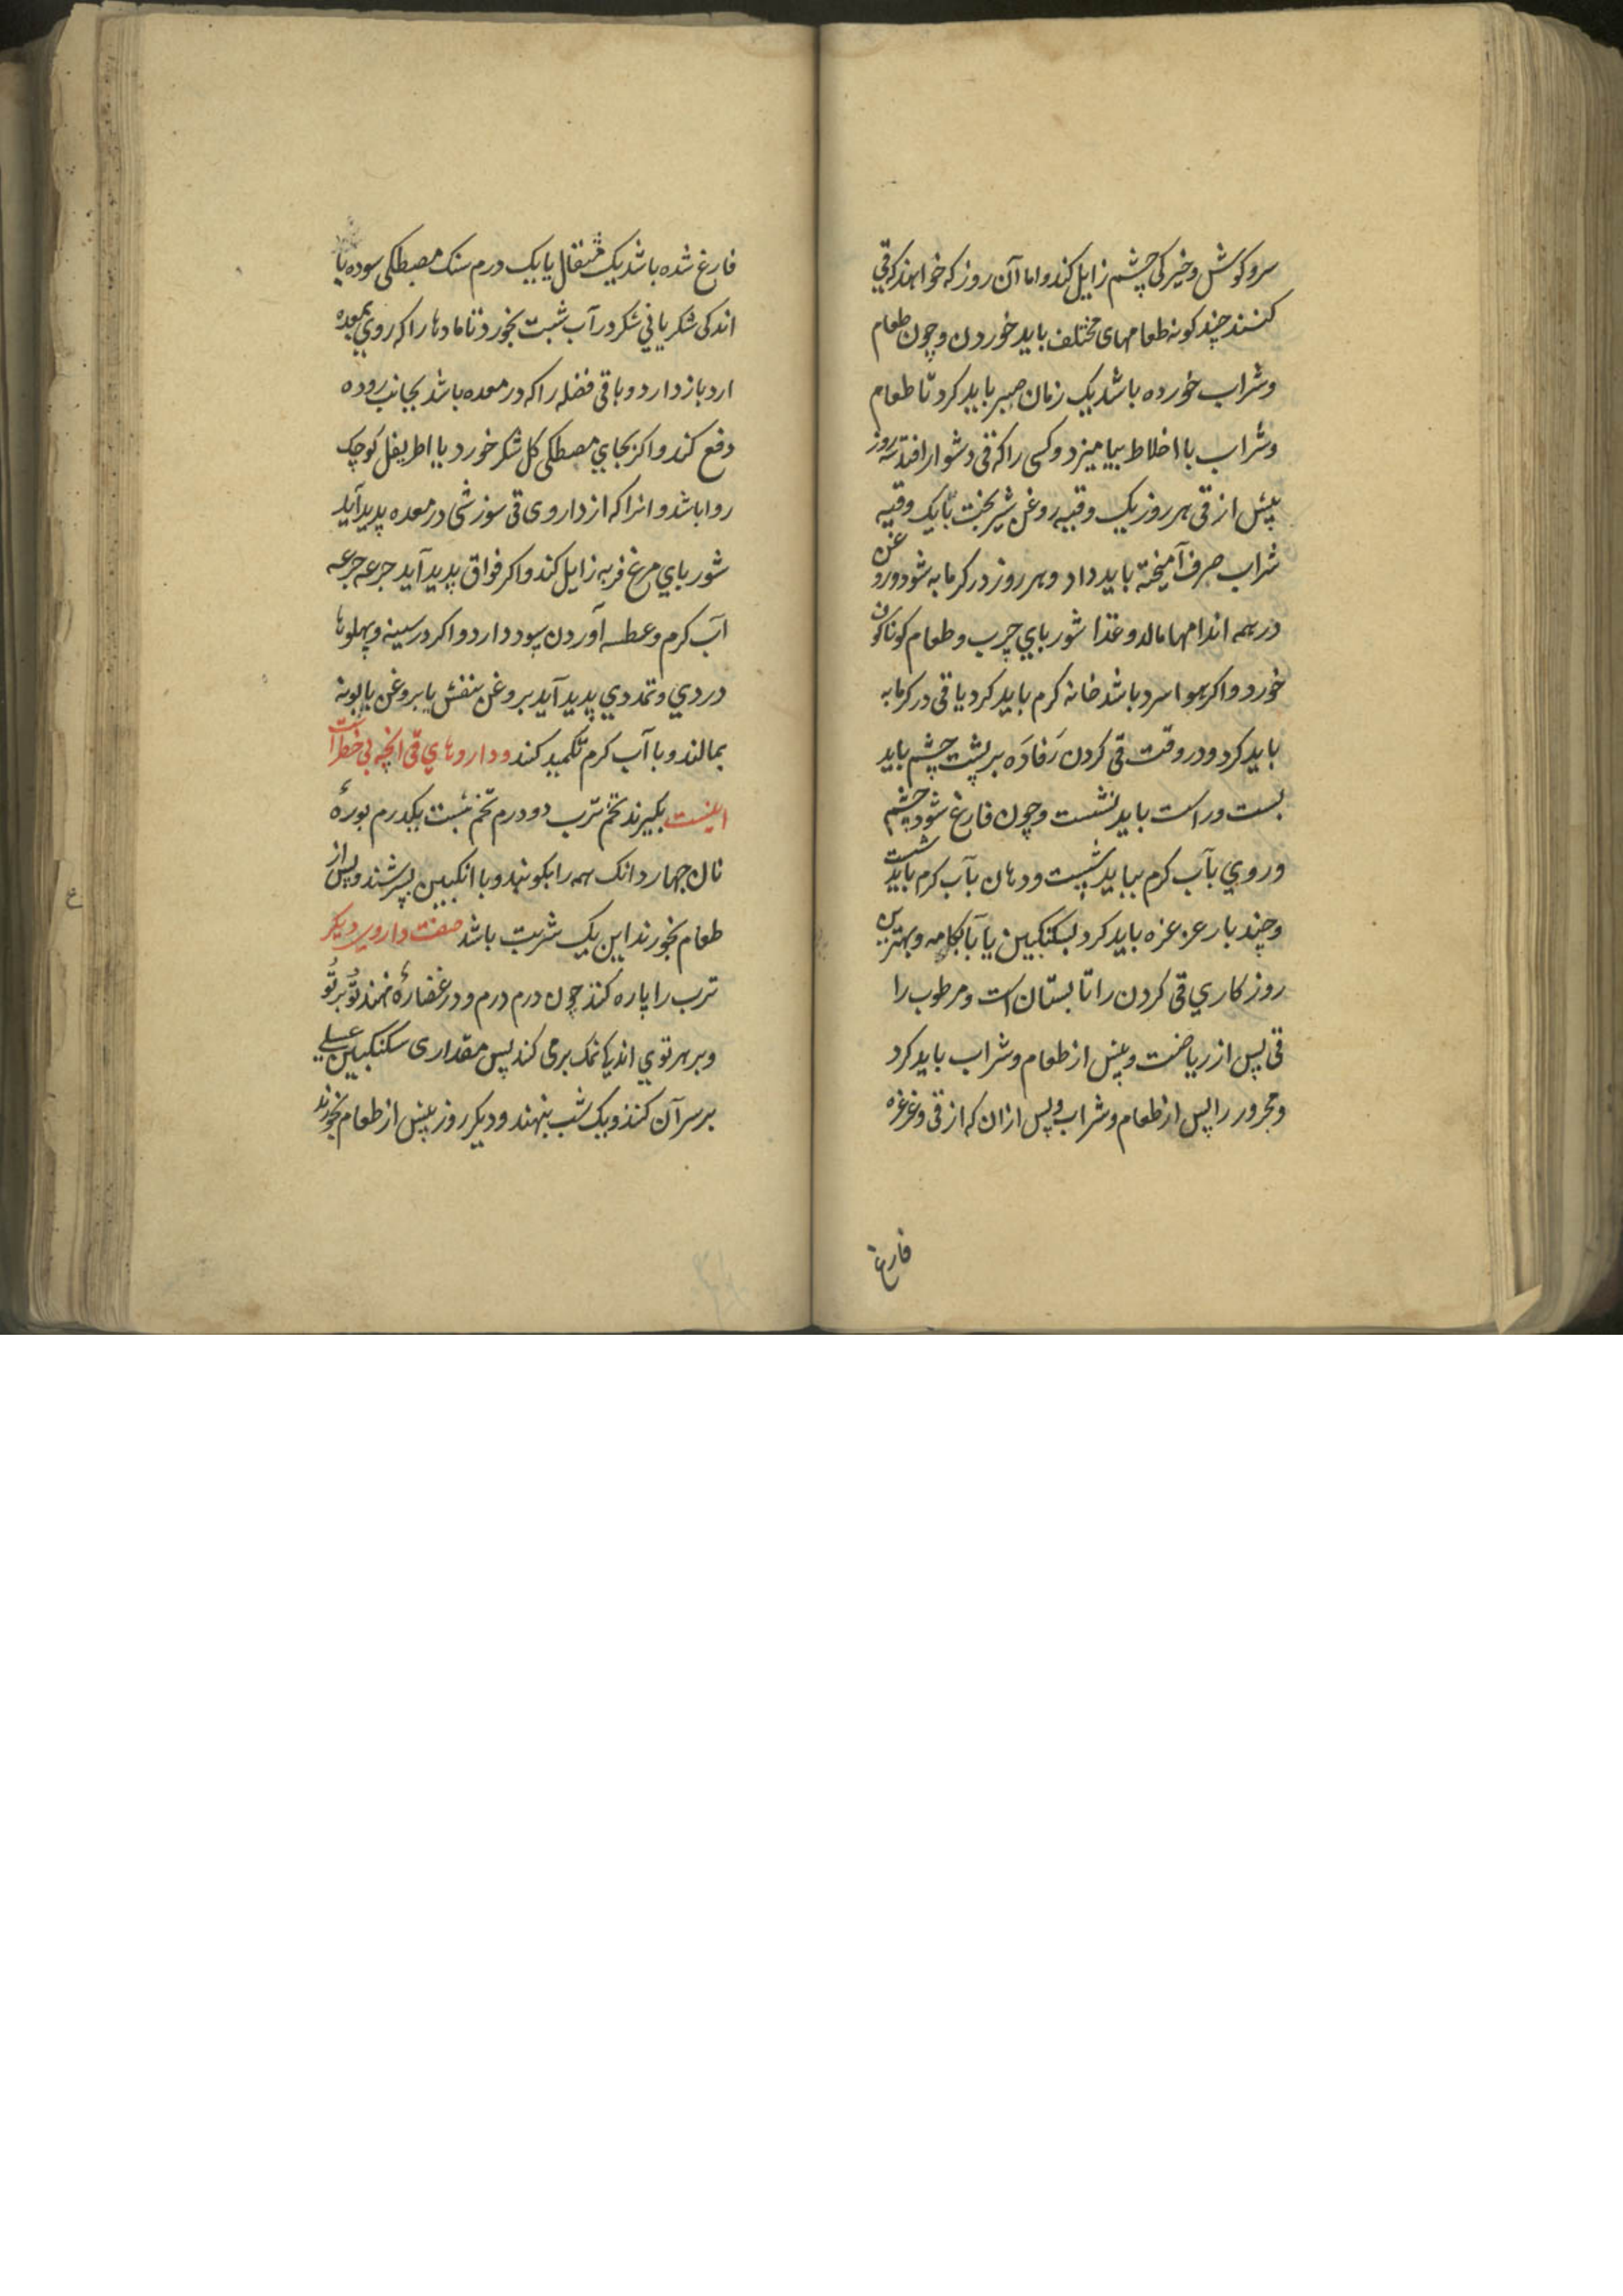 سر و کوش و خیرکی چشم زایل کند و اما آن روز که خواهند که قی
کنند چند کونه طعامهای مختلف باید خوردن و چون طعام
و شراب خورده باشد یک زمان صبر باید کرد تا طعام
و شراب با اخلاط بیامیزد و کسی را که قی دشوار افتد سه روز
پیش از قی هر روز یک وقیه روغن شیربخت با یک وقیه
شراب صرف آمیخته باید داد و هر روز در کرمابه شود و روغن
در همه اندامها مالد و غذا شوربای چرب و طعام کوناکون
خورد و اکر هوا سرد باشد خانه کرم باید کرد یا قی در کرمابه
باید کرد و در وقت قی کردن رَفادَه بر پشت چشم باید
بست و راست باید نشست و چون فارغ شود چشم
و روی بآب کرم بباید شست و دهان بآب کرم باید شست
و چند بار غرغره باید کرد بسکنکبین یا بآبکامه و بهترین
روزکاری قی کردن را تابستان است و مرطوب را
قی پس از ریاضت و پیش از طعام و شراب باید کرد
و محرور را پس از طعام و شراب و پس ازان که از قی و غرغره
فارغ
فارغ شده باشد یک مثقال یا یک درم سنک مصطکی سوده با
اندکی شکر یا بی شکر در آب شبت بخورد تا مادها را که روی بمعده
ارد باز دارد و باقی فضله را که در معده باشد بجانب روده
دفع کند و اکر بجای مصطکی کل شکر خورد یا اطریفل کوچک
روا باشد و انرا که از داروی قی سوزشی در معده پدید آید
شوربای مرغ فربه زایل کند و اکر فواق پدید آید جرعه جرعه
آب کرم و عطسه آوردن سود دارد و اکر در سینه و پهلوها
دردی و تمددی پدید آید بروغن بنفش یا بروغن بابونه
بمالند و با آب کرم تکمید کند و داروهای قی انچه بی خطر است
اینست بکیرند تخم ترب دو درم تخم شبت یکدرم بورهٔ
نان چهار دانک همه را بکوبند و با انکبین بسرشند و پس از
طعام بخورند این یک شربت باشد صفت داروی دیکر
ترب را پاره کند چون درم درم و در غضارهٔ نهند تُو بر تُو
و بر هر توی اندکی نمک برمی کند پس مقداری سکنکبین عسلی
بر سر آن کنند و یک شب بنهند و دیکر روز پیش از طعام بخورند